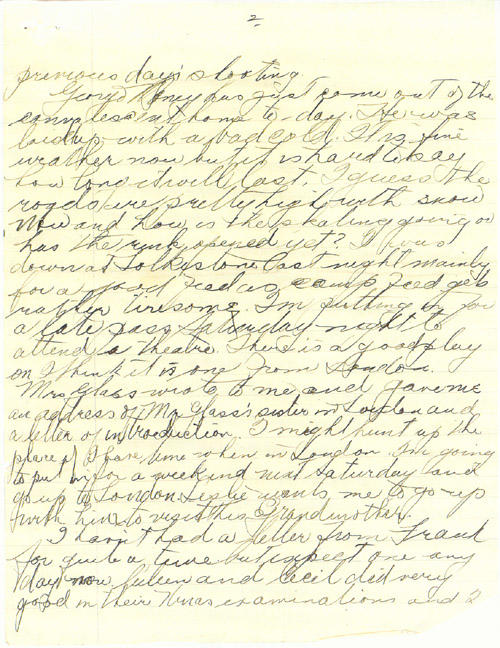 2
previous day's shooting.
George Honey has just come out of the
convalescent home to-day. He was
laid up with a bad cold. It is fine
weather now but it is hard to say
how long it will last. I guess the
roads are pretty high with snow
now and how is the skating going on
has the rink opened yet? I was
down at Folkestone last night mainly
for a good feed as camp feed gets
rather tiresome. I'm putting in for
a late pass Saturday night to
attend a theatre. There is a good play
on I think it is one from London.
Mrs Glass wrote to me and gave me
an address of Mr Glass's sister in London and
a letter of introduction. I might hunt up the
place if I have time when in London. I'm going
to put in for a weekend next Saturday and
go up to London. Leslie wants me to go up
with him to visit his Grandmother.
I havn't had a letter from Frank
for quite a time but expect one any
day now. and Cecil did very
good in their Xmas examinations and I